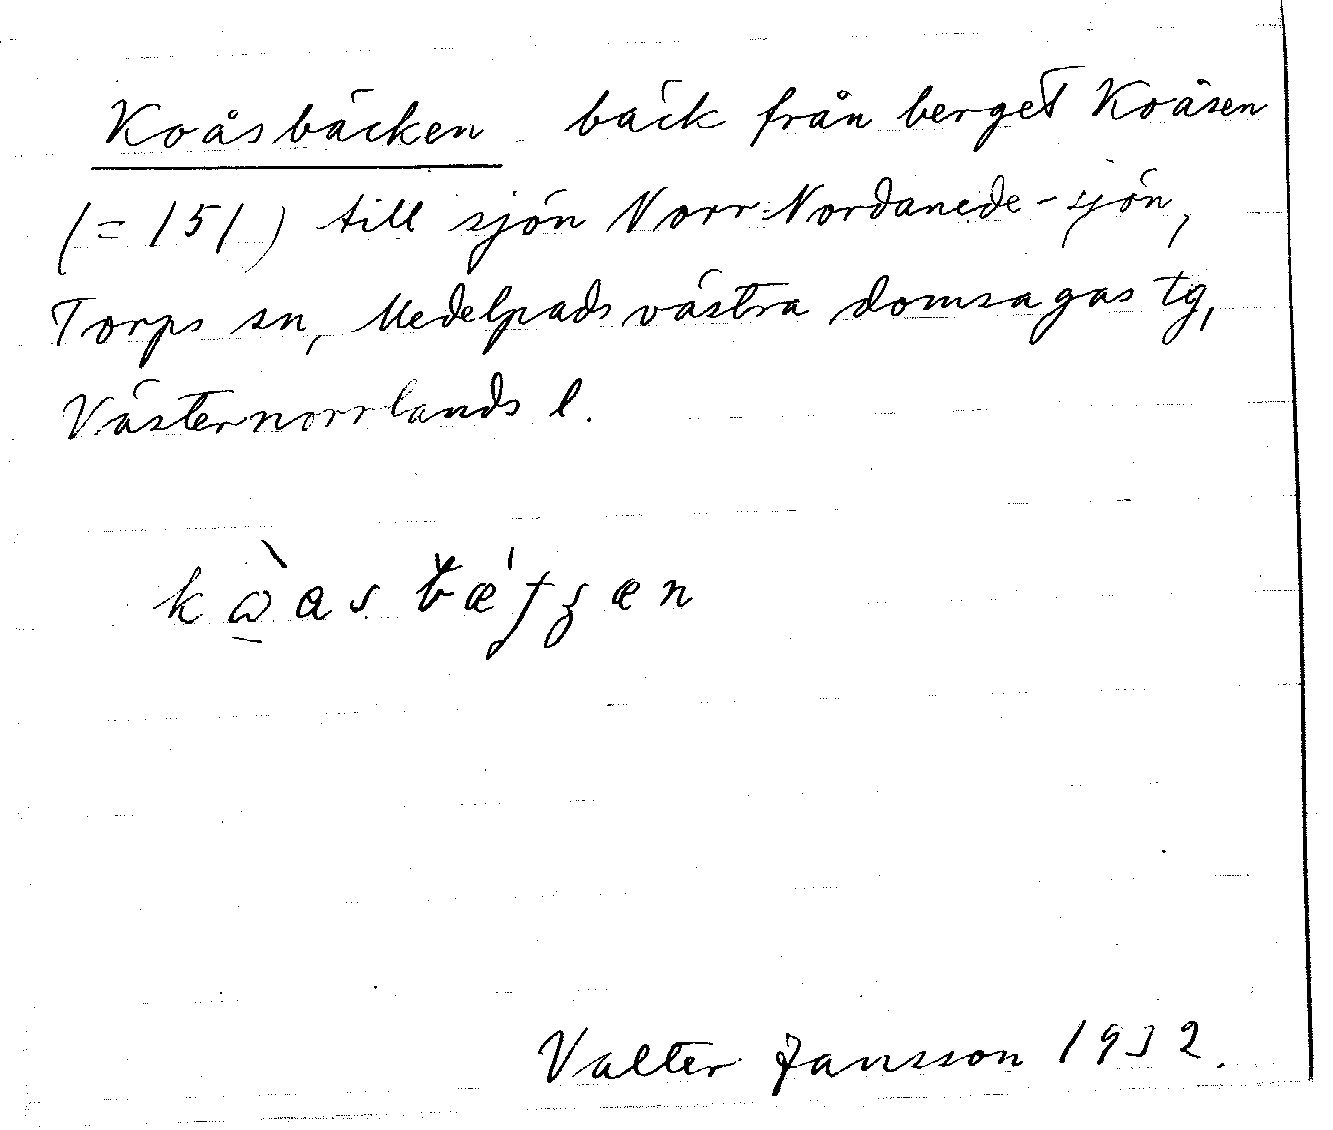 Koåsbäcken bäck från berget Koåsen
(= 151) till sjön Norr-Nordanede-sjön,
Torps sn, Medelpads västra domsagas tg,
Västernorrlands l.
Valter Jansson 1932.